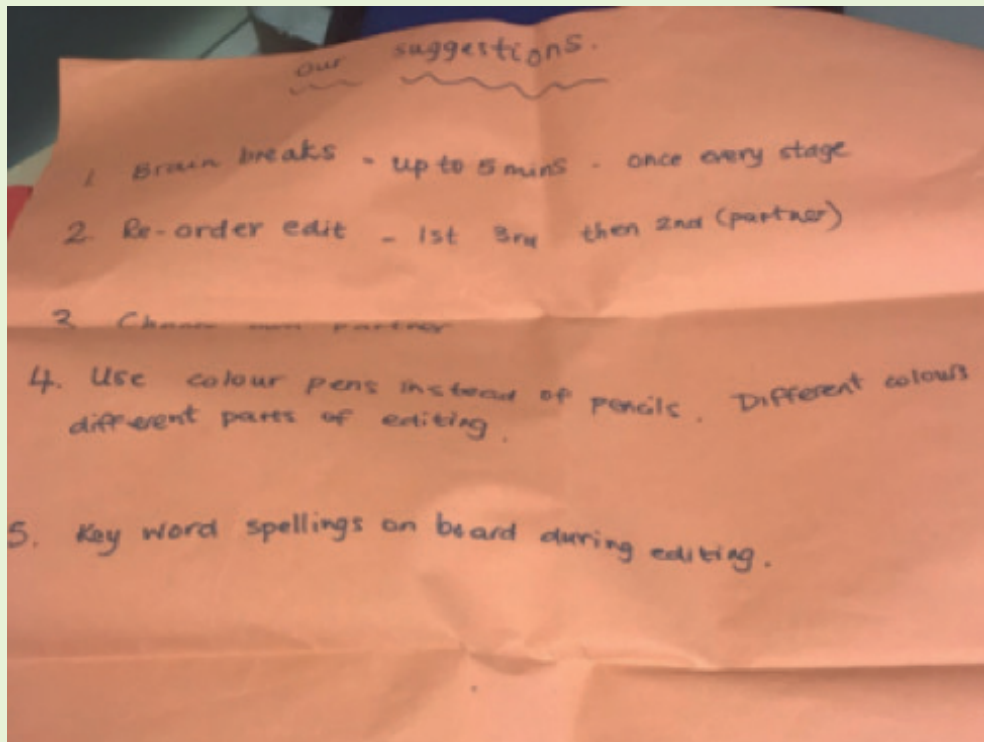 Our suggestions.
1. Brain breaks - up to 5 mins - once every stage
2. Re-order edit - 1st 3rd then 2nd (partner)
3. Choose own partner
4. Use colour pens instead of pencils. Different colours
different parts of editing.
5. Key word spellings on board during editing.